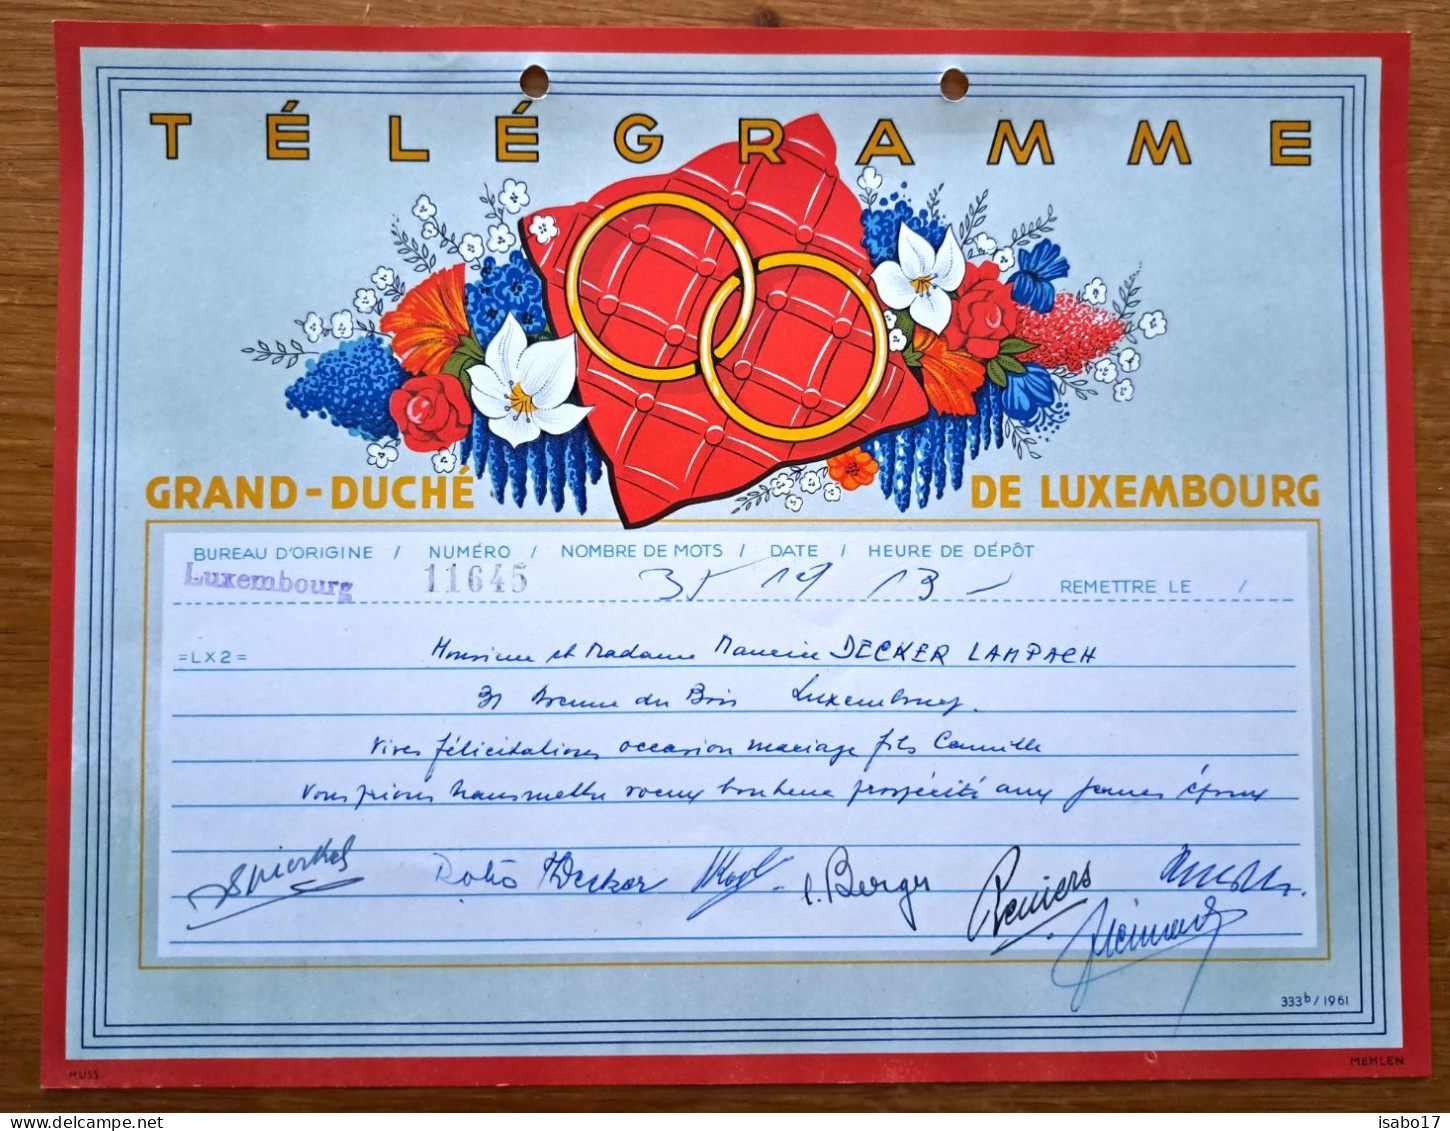 TÉLÉGRAMME
GRAND-DUCHÉ DE LUXEMBOURG
BUREAU D'ORIGINE / NUMÉRO / NOMBRE DE MOTS / DATE / HEURE DE DÉPÔT
Luxembourg 11645 35 19 13 REMETTRE LE /
=LX2= Monsieur et Madame Maurice DECKER LAMPACH
31 Avenue du Bois Luxembourg.
Vives félicitations occasion mariage fils Camille
Vous prions transmettre voeux bonheur prospérité aux jeunes époux
Berger Reniers
333b/1961
HUSS MEHLEN
isabo17